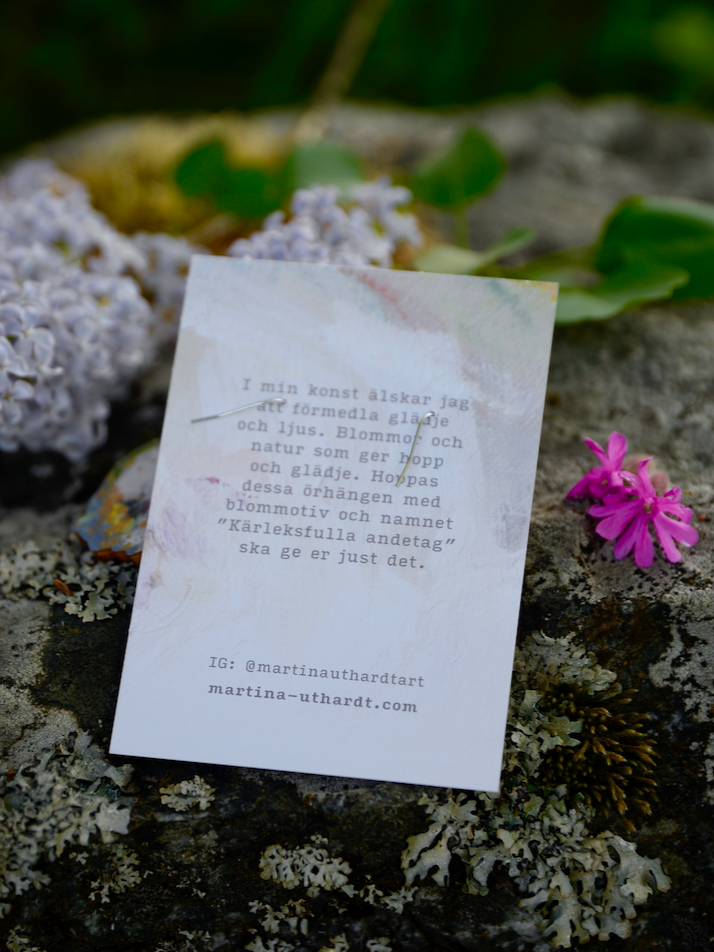 I min konst älskar jag
att förmedla glädje
och ljus. Blommor och
natur som ger hopp
och glädje. Hoppas
dessa örhängen med
blommotiv och namnet
"Kärleksfulla andetag"
ska ge er just det.
IG: @martinauthardtart
martina-uthardt.com